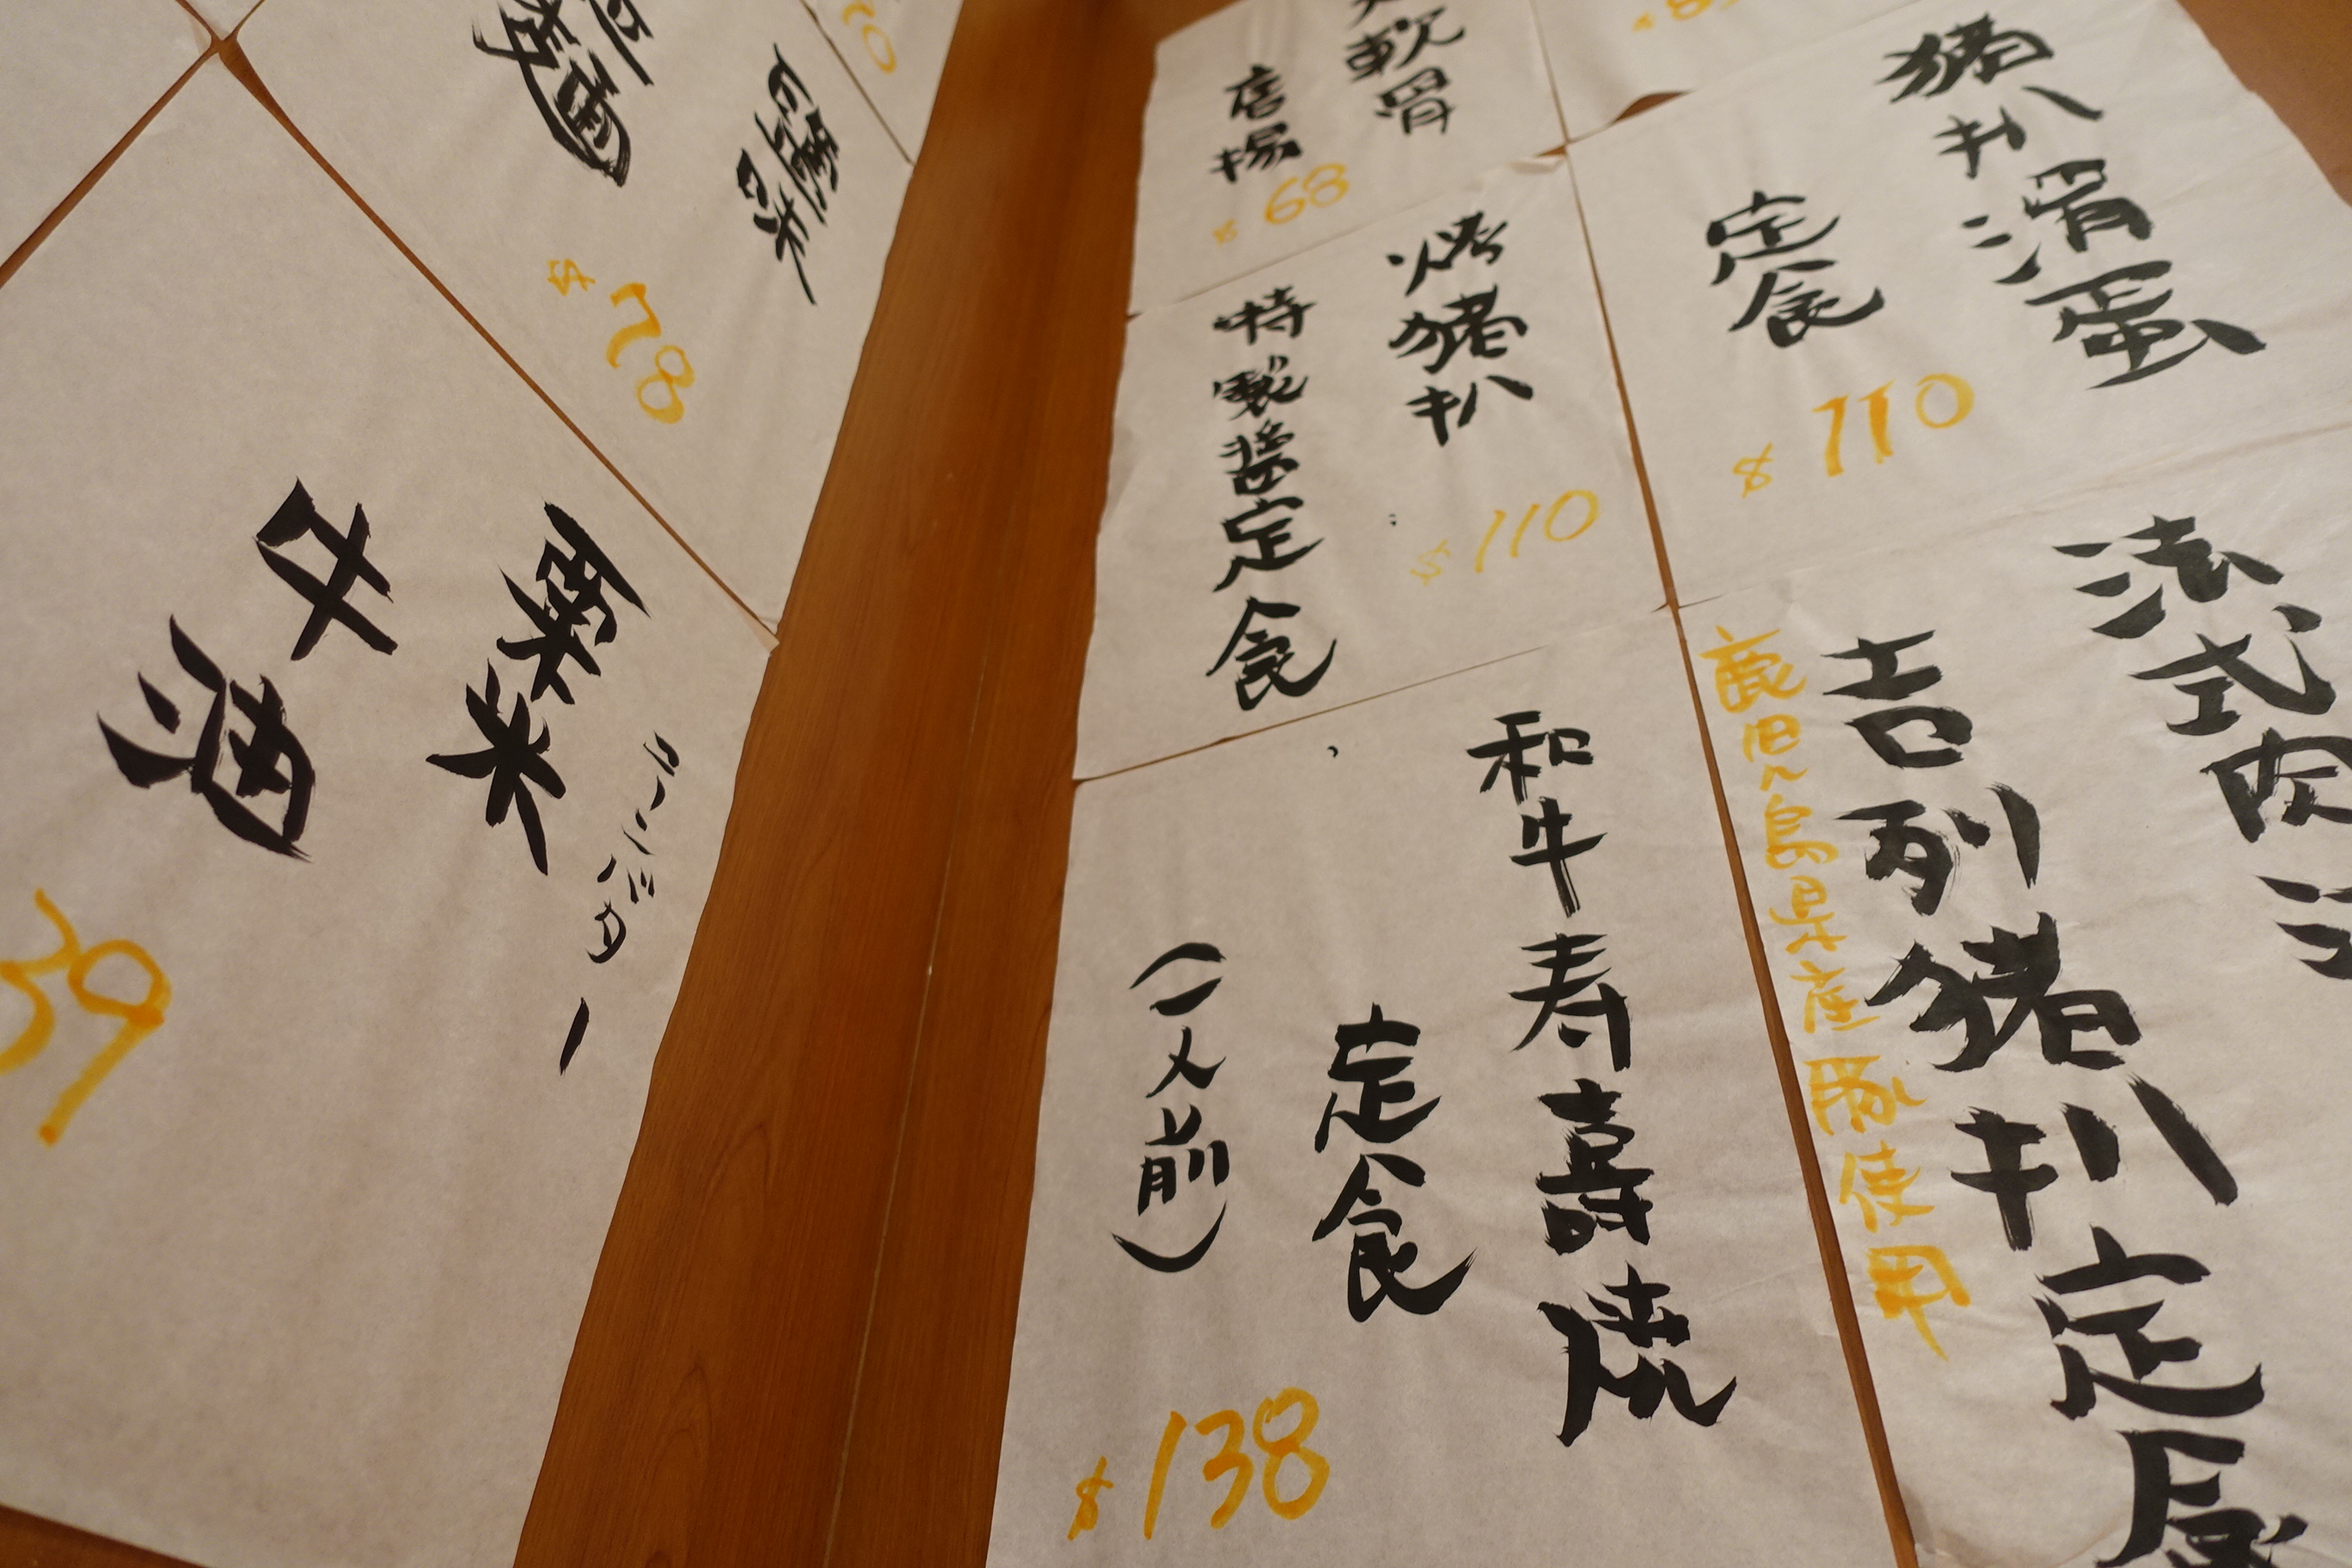 猪扒滑蛋
定食
$110
軟骨
唐揚
$68
烤猪扒
特製醬定食
$110
法式肉
吉列猪扒定食
鹿児島県産豚使用
和牛寿壽焼
定食
(一人前)
$138
$78
コーンバター
粟米
牛油
39